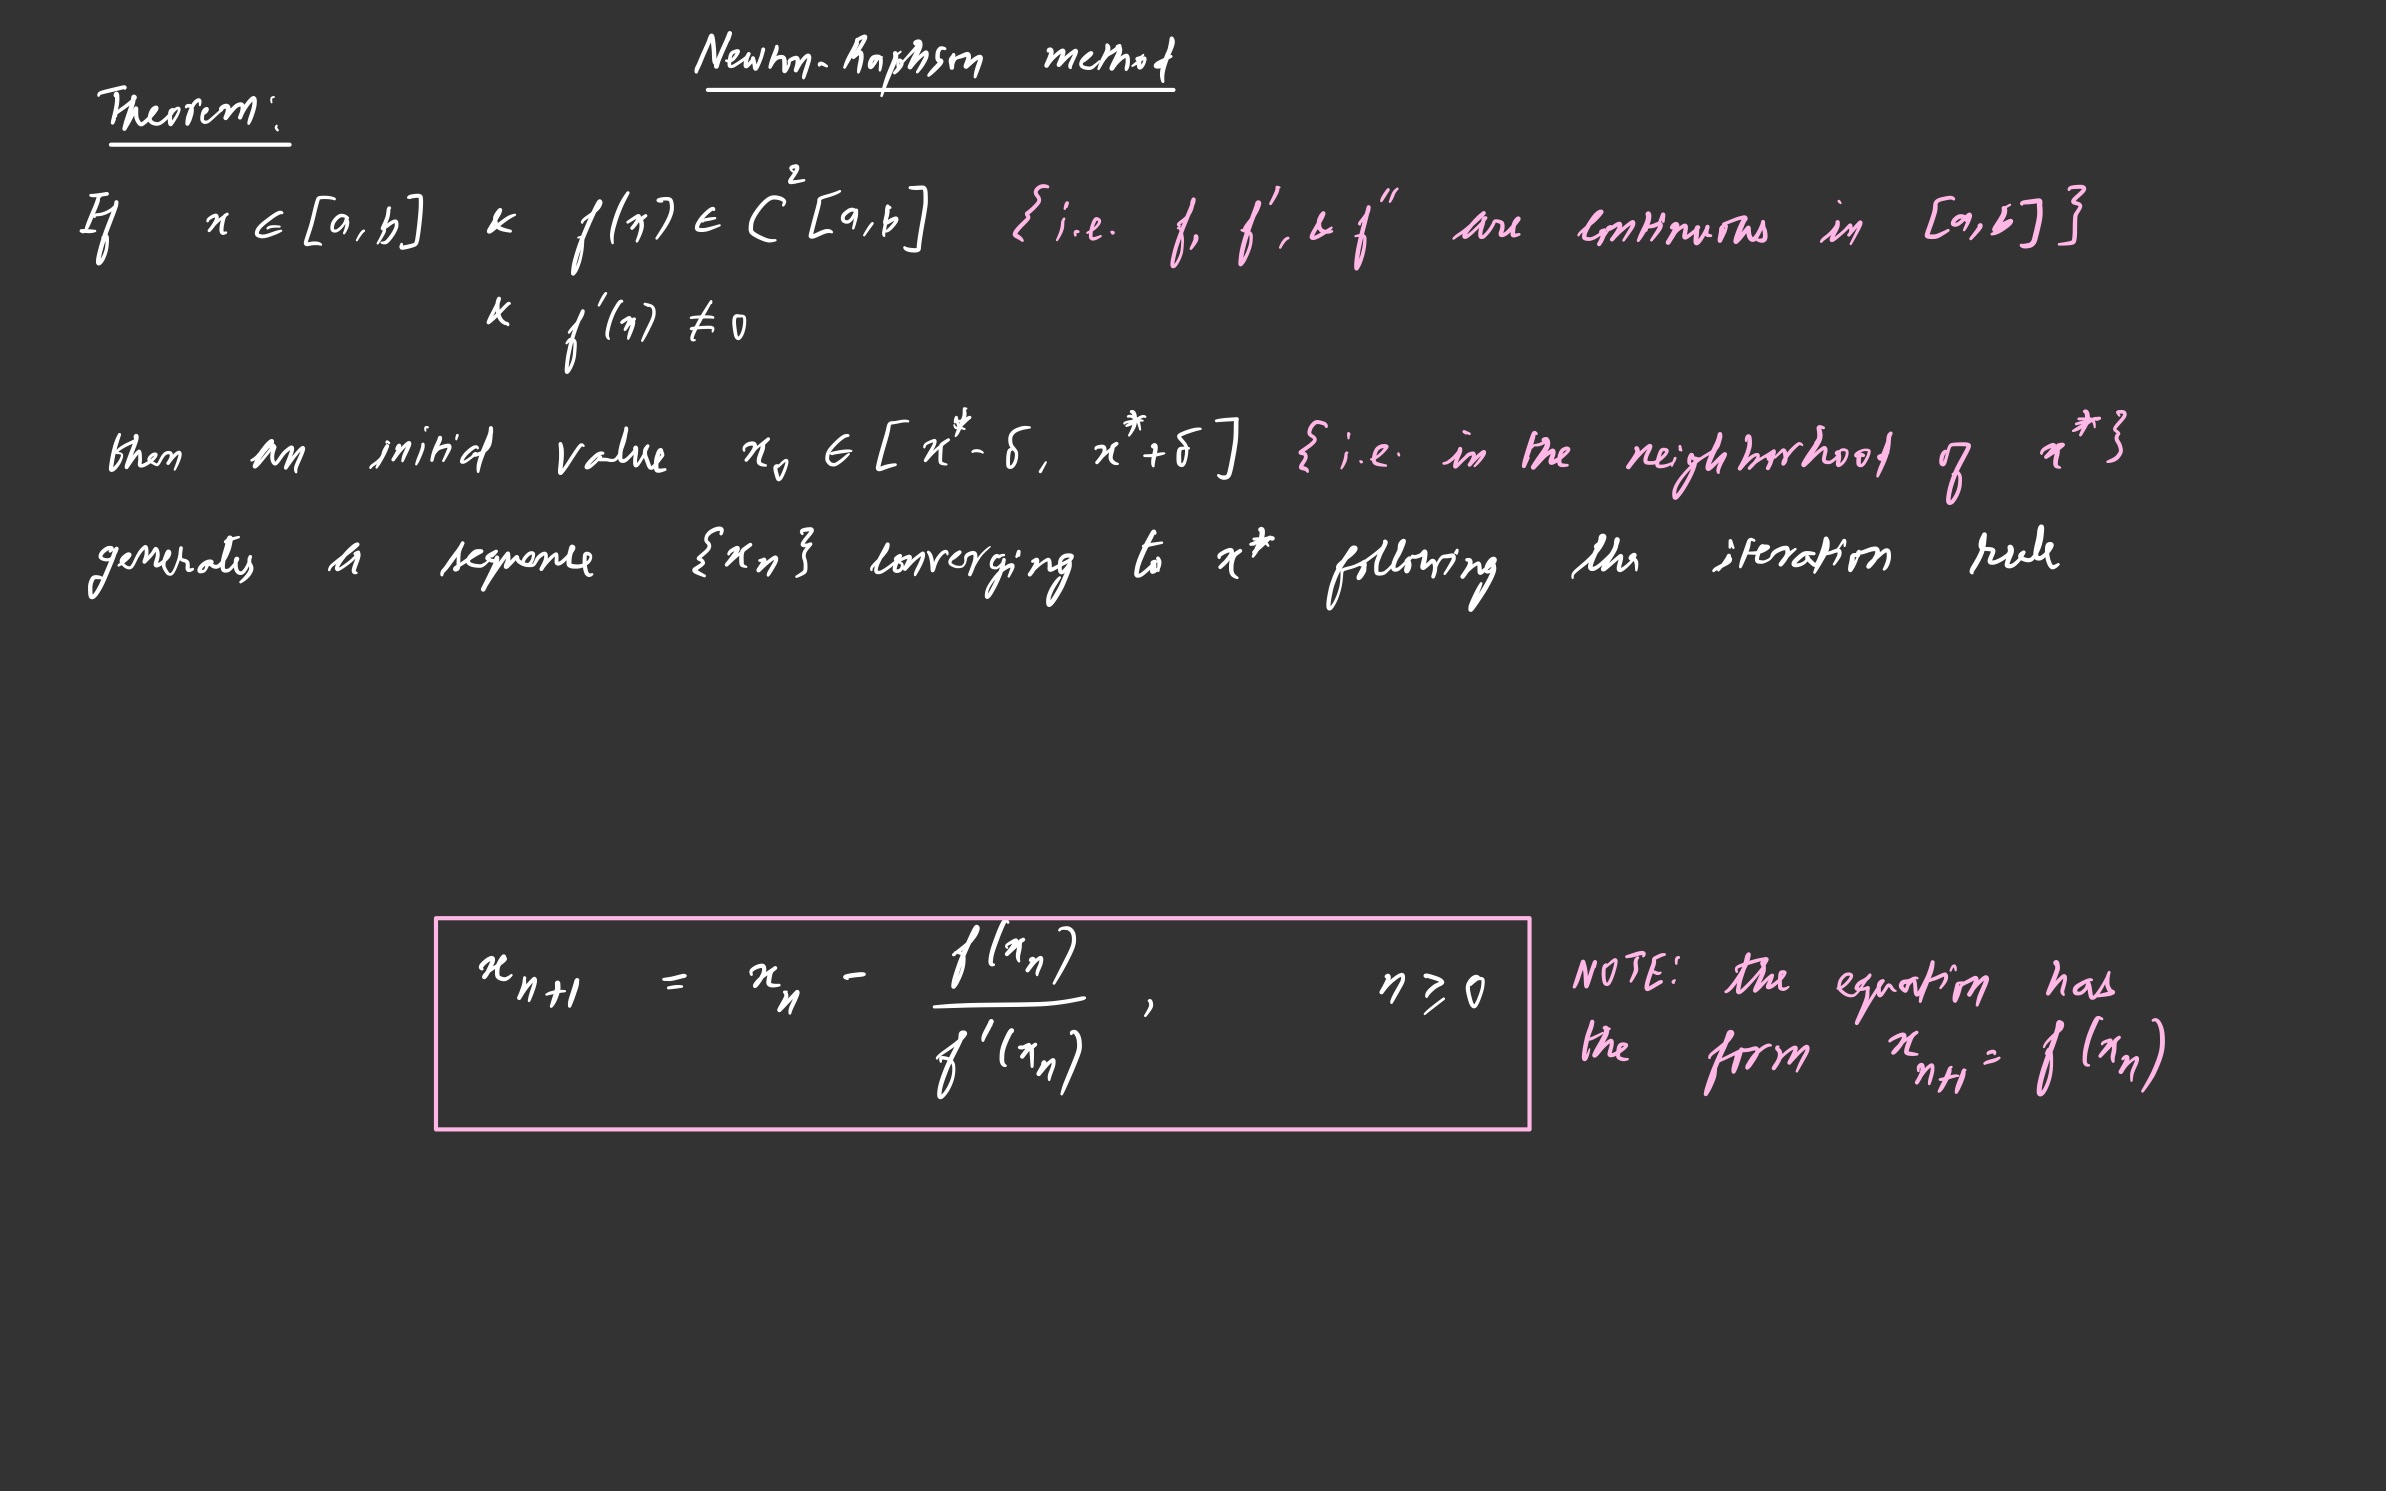 Newton-Raphson method
Theorem:
If x ∈ [a,b] & f(x) ∈ C²[a,b] {i.e. f, f', & f'' are continuous in [a,b]}
& f'(x) ≠ 0
then an initial value x₀ ∈ [x* - δ, x* + δ] {i.e. in the neighborhood of x*}
generates a sequence {xₙ} converging to x* following the iteration rule
xₙ₊₁ = xₙ - f(xₙ) / f'(xₙ) , n ≥ 0
NOTE: the equation has
the form xₙ₊₁ = f(xₙ)